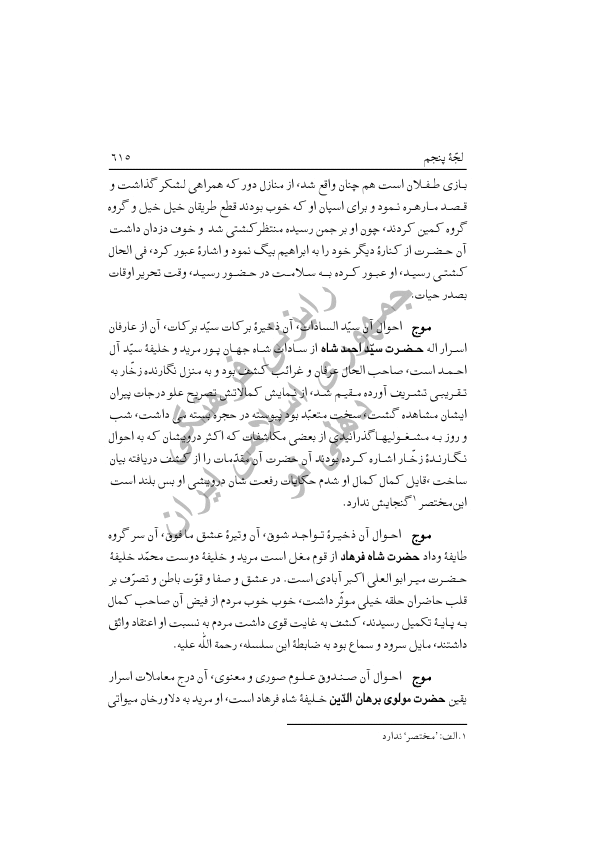 لجّۀ پنجم ٦١٥
بازی طفلان است هم چنان واقع شد، از منازل دور که همراهی لشکر گذاشت و
قصد مارهره نمود و برای اسپان او که خوب بودند قطع طریقان خیل خیل و گروه
گروه کمین کردند، چون او بر جمن رسیده منتظر کشتی شد و خوف دزدان داشت
آن حضرت از کنارۀ دیگر خود را به ابراهیم بیگ نمود و اشارۀ عبور کرد، فی الحال
کشتی رسید، او عبور کرده به سلامت در حضور رسید، وقت تحریر اوقات
بصدر حیات.
موج احوال آن سیّد السادات، آن ذخیرۀ برکات سیّد برکات، آن از عارفان
اسرار اله حضرت سیّد احمد شاه از سادات شاه جهان پور مرید و خلیفۀ سیّد آل
احمد است، صاحب الحال عرفان و غرائب کشف بود و به منزل نگارنده زخّار به
تقریبی تشریف آورده مقیم شد، از نمایش کمالاتش تصریح علو درجات پیران
ایشان مشاهده گشت، سخت متعبّد بود پیوسته در حجره بسته می داشت، شب
و روز به مشغولیها گذرانیدی از بعضی مکاشفات که اکثر درویشان که به احوال
نگارندۀ زخّار اشاره کرده بودند آن حضرت آن مقدّمات را از کشف دریافته بیان
ساخت، قایل کمال کمال او شدم حکایات رفعت شان درویشی او بس بلند است
این مختصر۱ گنجایش ندارد.
موج احوال آن ذخیرۀ تواجد شوق، آن وتیرۀ عشق ما فوق، آن سر گروه
طایفۀ وداد حضرت شاه فرهاد از قوم مغل است مرید و خلیفۀ دوست محمّد خلیفۀ
حضرت میر ابو العلی اکبر آبادی است. در عشق و صفا و قوّت باطن و تصرّف بر
قلب حاضران حلقه خیلی موثّر داشت، خوب خوب مردم از فیض آن صاحب کمال
به پایۀ تکمیل رسیدند، کشف به غایت قوی داشت مردم به نسبت او اعتقاد واثق
داشتند، مایل سرود و سماع بود به ضابطۀ این سلسله، رحمة الله علیه.
موج احوال آن صندوق علوم صوری و معنوی، آن درج معاملات اسرار
یقین حضرت مولوی برهان الدّین خلیفۀ شاه فرهاد است، او مرید به دلاورخان میواتی
۱. الف: 'مختصر' ندارد
رایزنی فرهنگی
جمهوری اسلامی ایران
دهلی نو